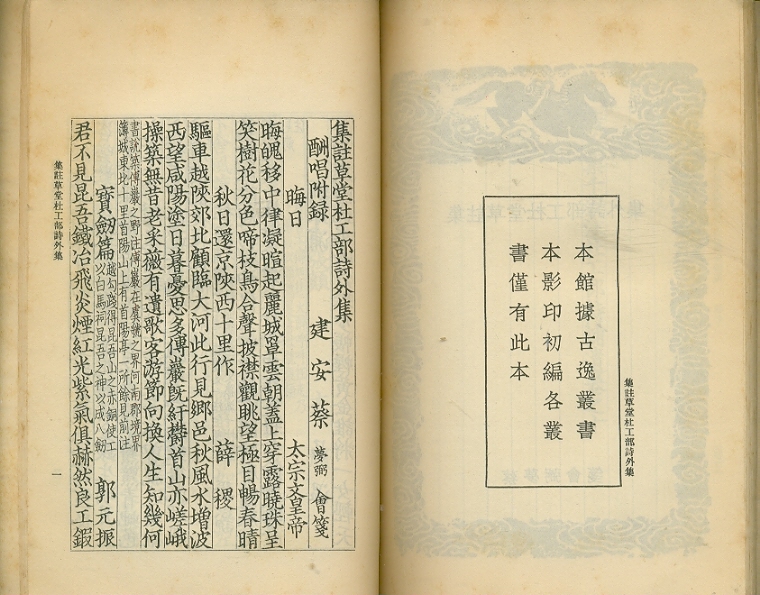 集註草堂杜工部詩外集
本館據古逸叢書
本影印初編各叢
書僅有此本
集註草堂杜工部詩外集
酬唱附録 建安蔡夢弼會箋
晦日 太宗文皇帝
晦魄移中律凝暄起麗城罩雲朝蓋上穿露曉珠呈
笑樹花分色啼枝鳥合聲披襟觀眺望極目暢春晴
秋日還京陜西十里作 薛稷
驅車越陜郊北顧臨大河此行見鄉邑秋風水增波
西望咸陽塗日暮憂思多傅巖旣紆鬱首山亦嵯峨
操築無昔老采薇有遺歌客游節向換人生知幾何
書說築傅巖之野注傅巖在虞虢之界河南郡境界
簿城東北十里首陽山上有首陽亭一所餘見前注
寶劒篇 越勾踐得昆吾山之赤銅使工
以白馬祠昆吾之神以成八劒 郭元振
君不見昆吾鐵冶飛炎煙紅光紫氣俱赫然良工鍜
集註草堂杜工部詩外集
一